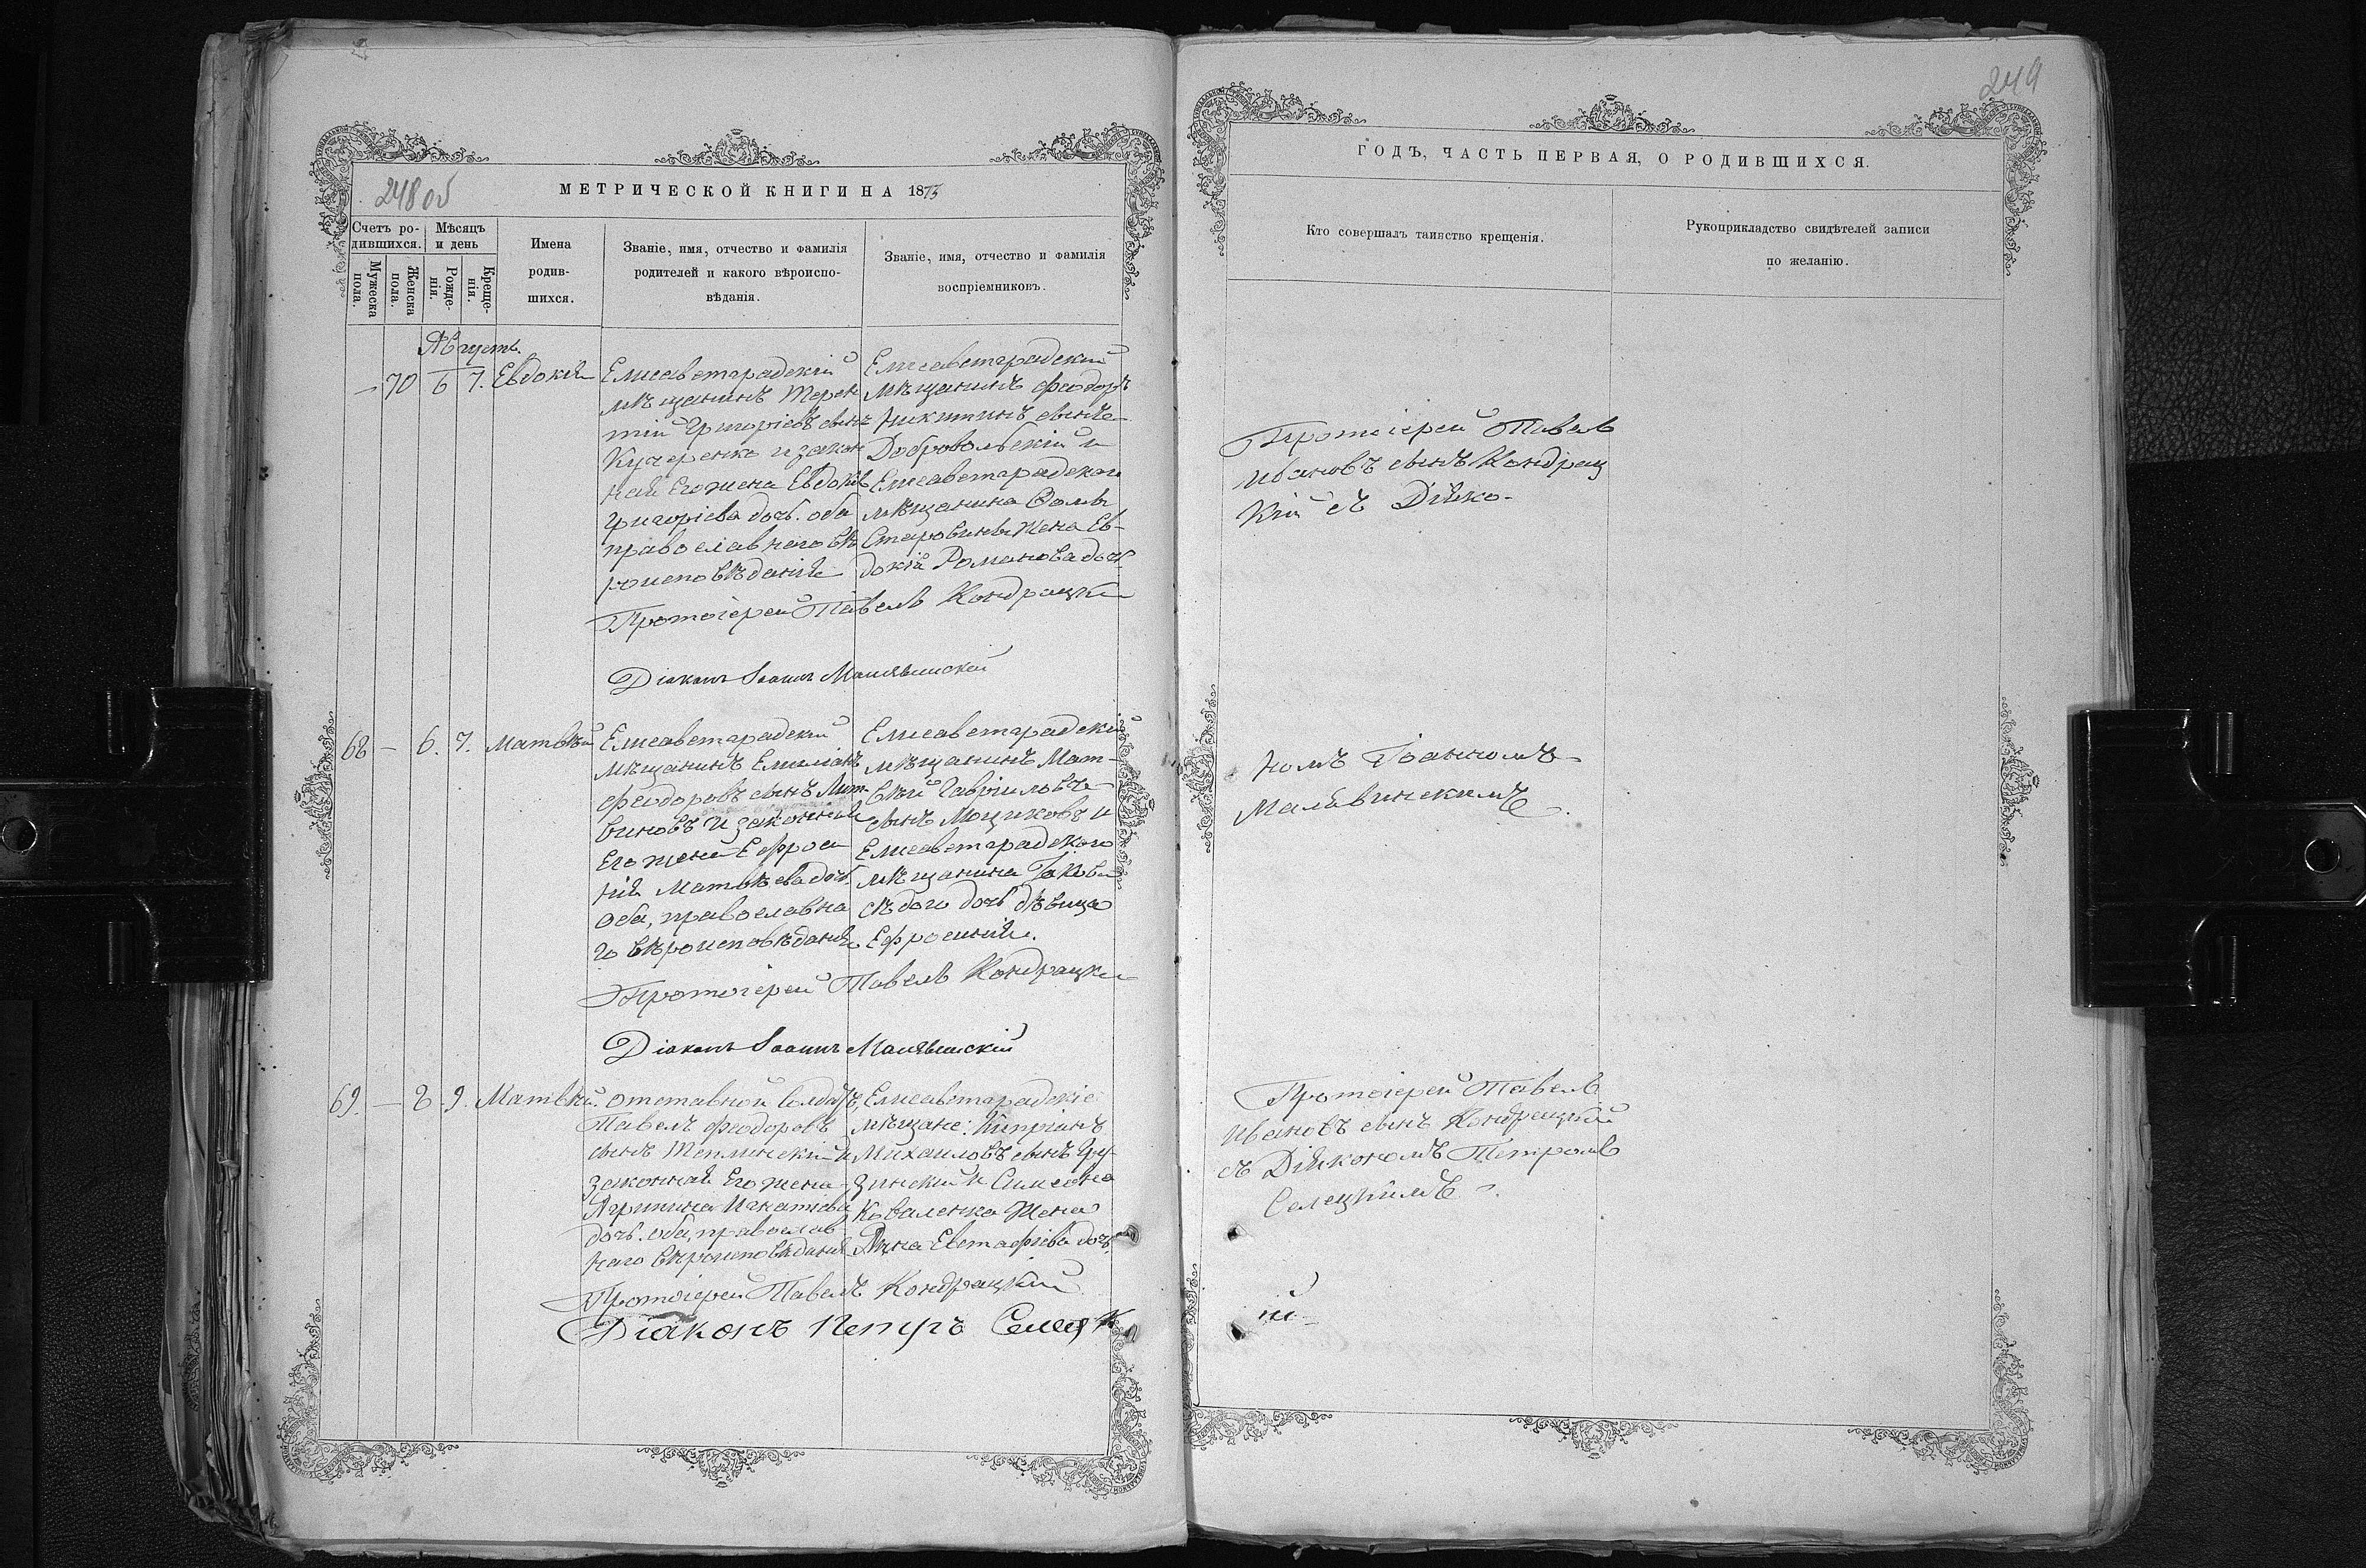 248 об
МЕТРИЧЕСКОЙ КНИГИ НА 1873
Счетъ ро-
дившихся.
Мѣсяцъ
и день
Мужеска
пола.
Женска
пола.
Рожде-
нія.
Креще-
нія.
Имена
родив-
шихся.
Званіе, имя, отчество и фамилія
родителей и какого вѣроиспо-
вѣданія.
Званіе, имя, отчество и фамилія
воспріемниковъ.
Августъ.
— 70 6 7. Евдокія
Елисаветградскій
мѣщанинъ Терен
тій Григоріевъ сынъ
Кучеренко и закон
ная Его жена Евдокія
Григоріева дочь. оба
православнаго вѣ
роисповѣданія
Елисаветградскій
мѣщанинъ Феодоръ
Никитинъ сынъ
Добровольскій и
Елисаветградскаго
мѣщанина Фомы
жена Ев-
докія Романова дочь
Протоіерей Павелъ Кондрацкій
Діаконъ Іоаннъ Малявинскій
68 — 6. 7. Матвѣй
Елисаветградскій
мѣщанинъ Емиліанъ
Феодоровъ сынъ Лит
виновъ и законная
Его жена Ефроси
нія Матвѣева дочь
Оба, православна
го вѣроисповѣданія
Елисаветградскій
мѣщанинъ Мат-
вѣй Гавріиловъ
сынъ Мощиковъ и
Елисаветградскаго
мѣщанина Іакова
Сѣдого дочь дѣвица
Ефросинія.
Протоіерей Павелъ Кондрацкій
Діаконъ Іоаннъ Малявинскій
69. — 8. 9. Матвѣй.
отставной солдатъ,
Павелъ Феодоровъ
сынъ Теплинскій и
законная Его жена
Агрипина Игнатіева
дочь. оба, православ
наго вѣроисповѣданія
Елисаветградскіе
мѣщане: Кипріянъ
Михаиловъ сынъ Гру-
зинскій и Симеона
Коваленка жена
Анна Евстафіева дочь
Протоіерей Павелъ Кондрацкій
Діаконъ Петръ Селецк
249
ГОДЪ, ЧАСТЬ ПЕРВАЯ, О РОДИВШИХСЯ.
Кто совершалъ таинство крещенія.
Рукоприкладство свидѣтелей записи
по желанію.
Протоіерей Павелъ
Ивановъ сынъ Кондрац
кій съ Діяко-
номъ Іоанномъ
Малявинскимъ.
Протоіерей Павелъ
Ивановъ сынъ Кондрацкій
съ Діякономъ Петромъ
Селецкимъ.
ій